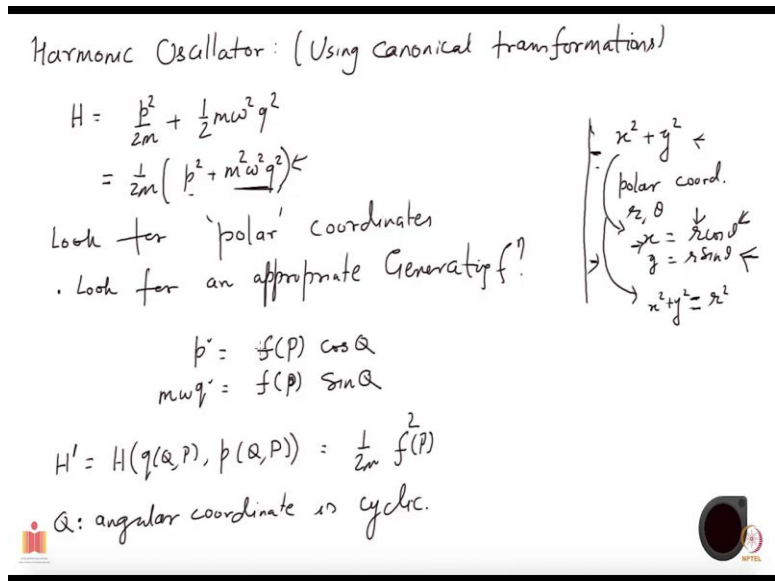 Harmonic Oscillator: (Using canonical transformations)
H = p²/2m + 1/2 mω²q²
= 1/2m (p² + m²ω²q²) ←
Look for 'polar' coordinates
. Look for an appropriate Generating f?
p = f(P) cos Q
mωq = f(P) Sin Q
H' = H(q(Q,P), p(Q,P)) = 1/2m f²(P)
Q: angular coordinate is cyclic.
x² + y² ←
polar coord.
r, θ
→ x = r cos θ ←
y = r sin θ ←
x²+y² = r²
NPTEL